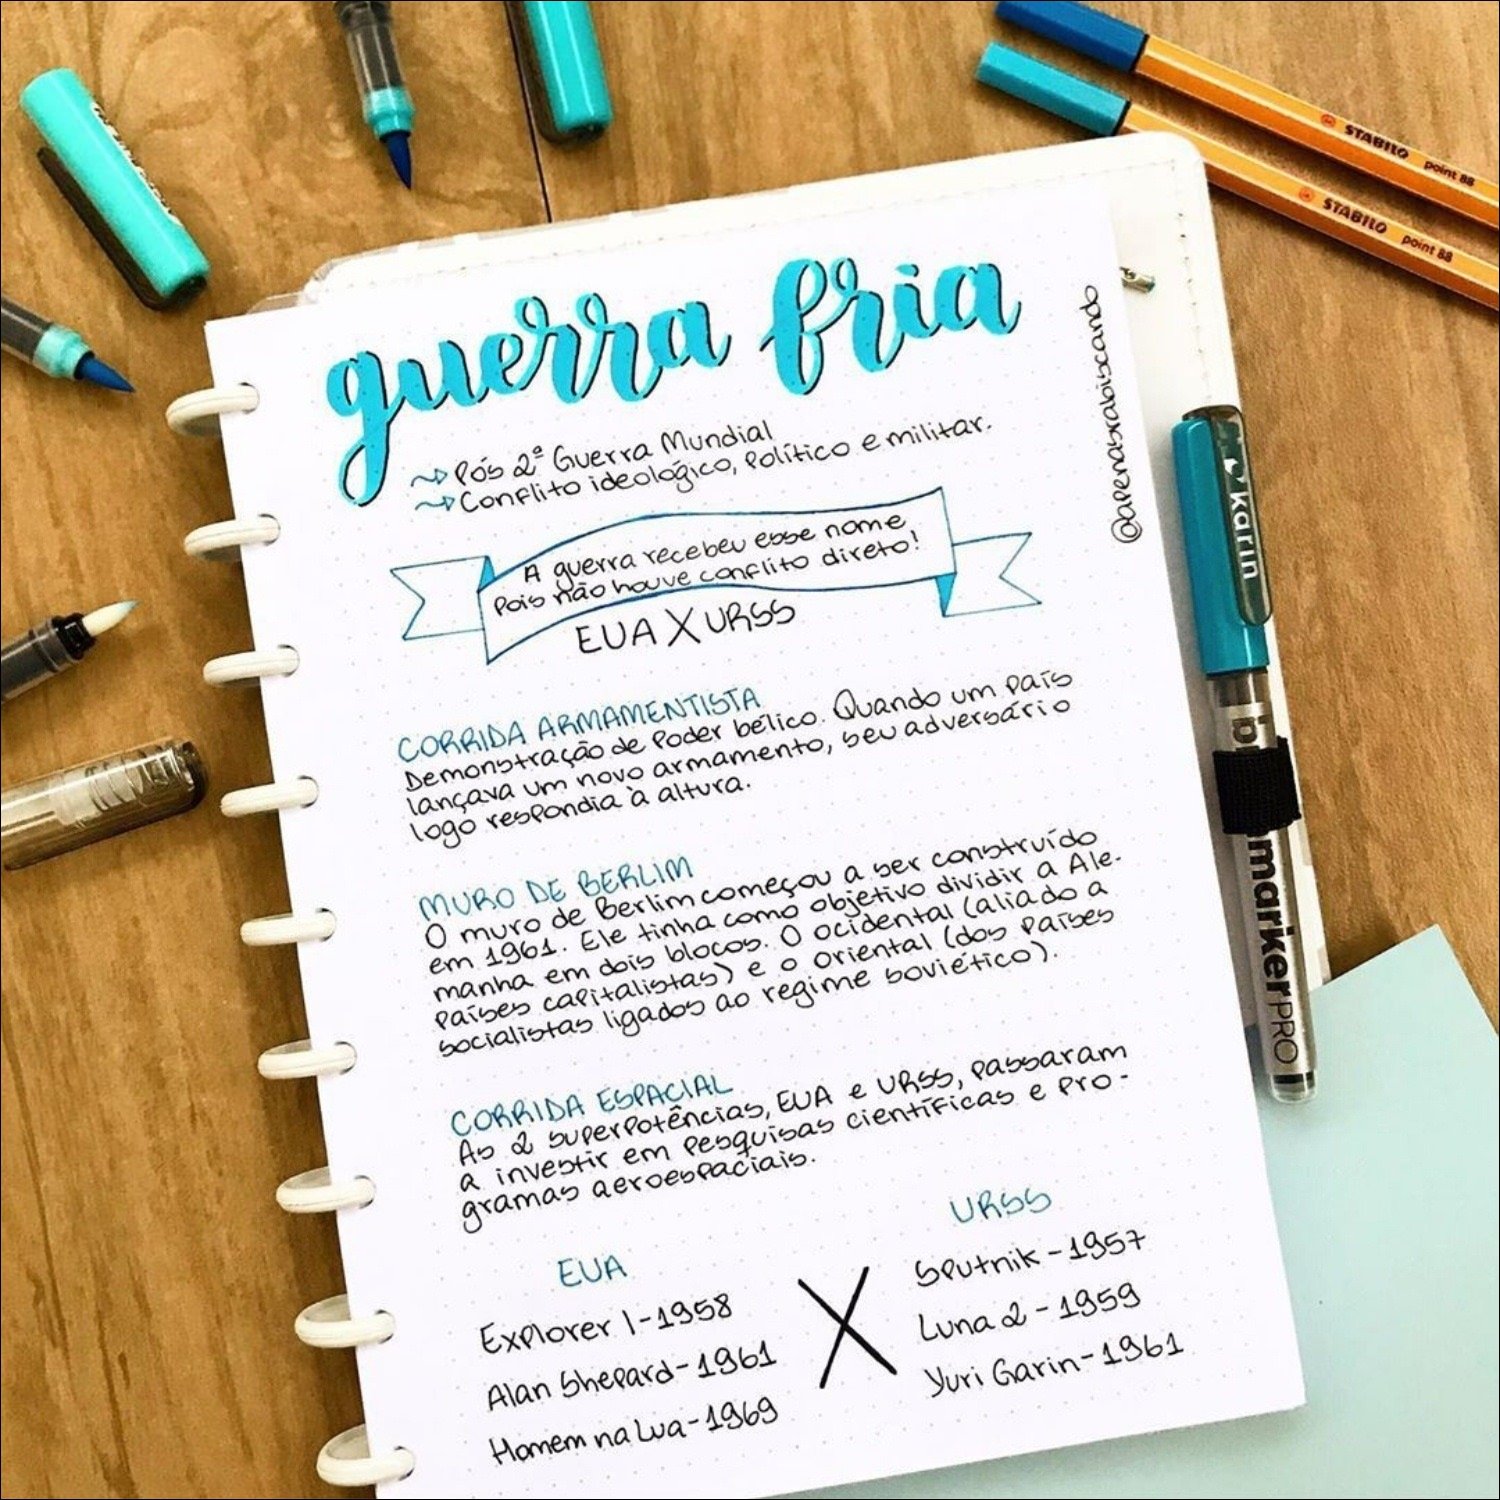 guerra fria
Pós 2ª Guerra Mundial
Conflito ideológico, político e militar.
A guerra recebeu esse nome,
pois não houve conflito direto!
EUA X URSS
CORRIDA ARMAMENTISTA
Demonstração de poder bélico. Quando um país
lançava um novo armamento, seu adversário
logo respondia à altura.
MURO DE BERLIM
O muro de Berlim começou a ser construído
em 1961. Ele tinha como objetivo dividir a Ale-
manha em dois blocos. O ocidental (aliado a
países capitalistas) e o oriental (dos países
socialistas ligados ao regime soviético).
CORRIDA ESPACIAL
As 2 superpotências, EUA e URSS, passaram
a investir em pesquisas científicas e pro-
gramas aeroespaciais.
EUA
Explorer 1-1958
Alan Shepard-1961
Homem na Lua-1969
X
URSS
Sputnik-1957
Luna 2-1959
Yuri Garin-1961
@apenasrabiscando
STABILO point 88
STABILO point 88
karin
markerPRO